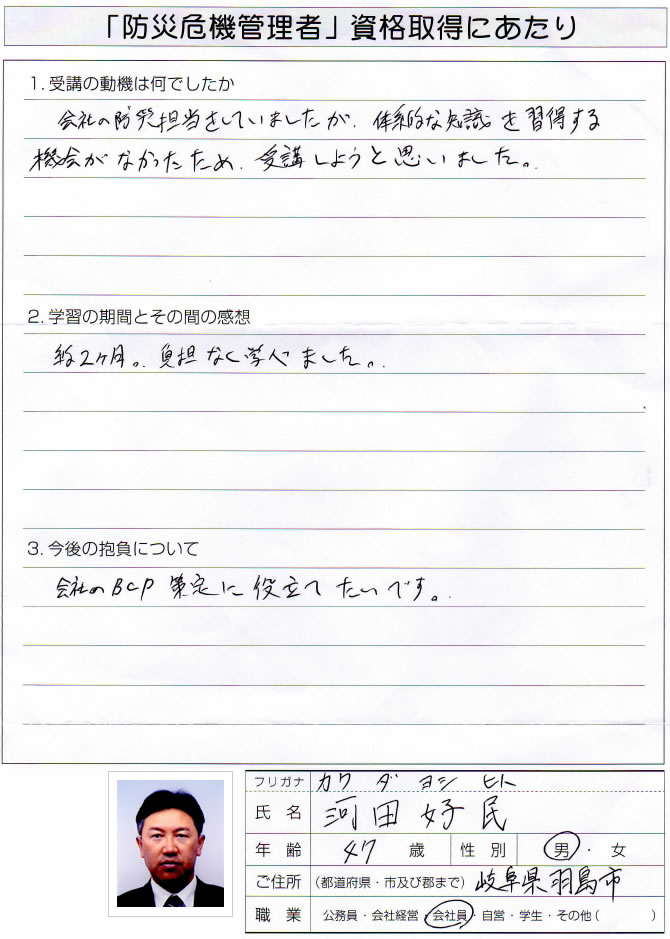 「防災危機管理者」資格取得にあたり
1. 受講の動機は何でしたか
会社の防災担当をしていましたが、体系的な知識を習得する
機会がなかったため、受講しようと思いました。
2. 学習の期間とその間の感想
約2ヶ月。負担なく学べました。
3. 今後の抱負について
会社のBCP策定に役立てたいです。
フリガナ カワダ ヨシヒト
氏名 河田好民
年齢 47 歳 性別 男・女
ご住所 (都道府県・市及び郡まで) 岐阜県羽島市
職業 公務員・会社経営・会社員・自営・学生・その他( )